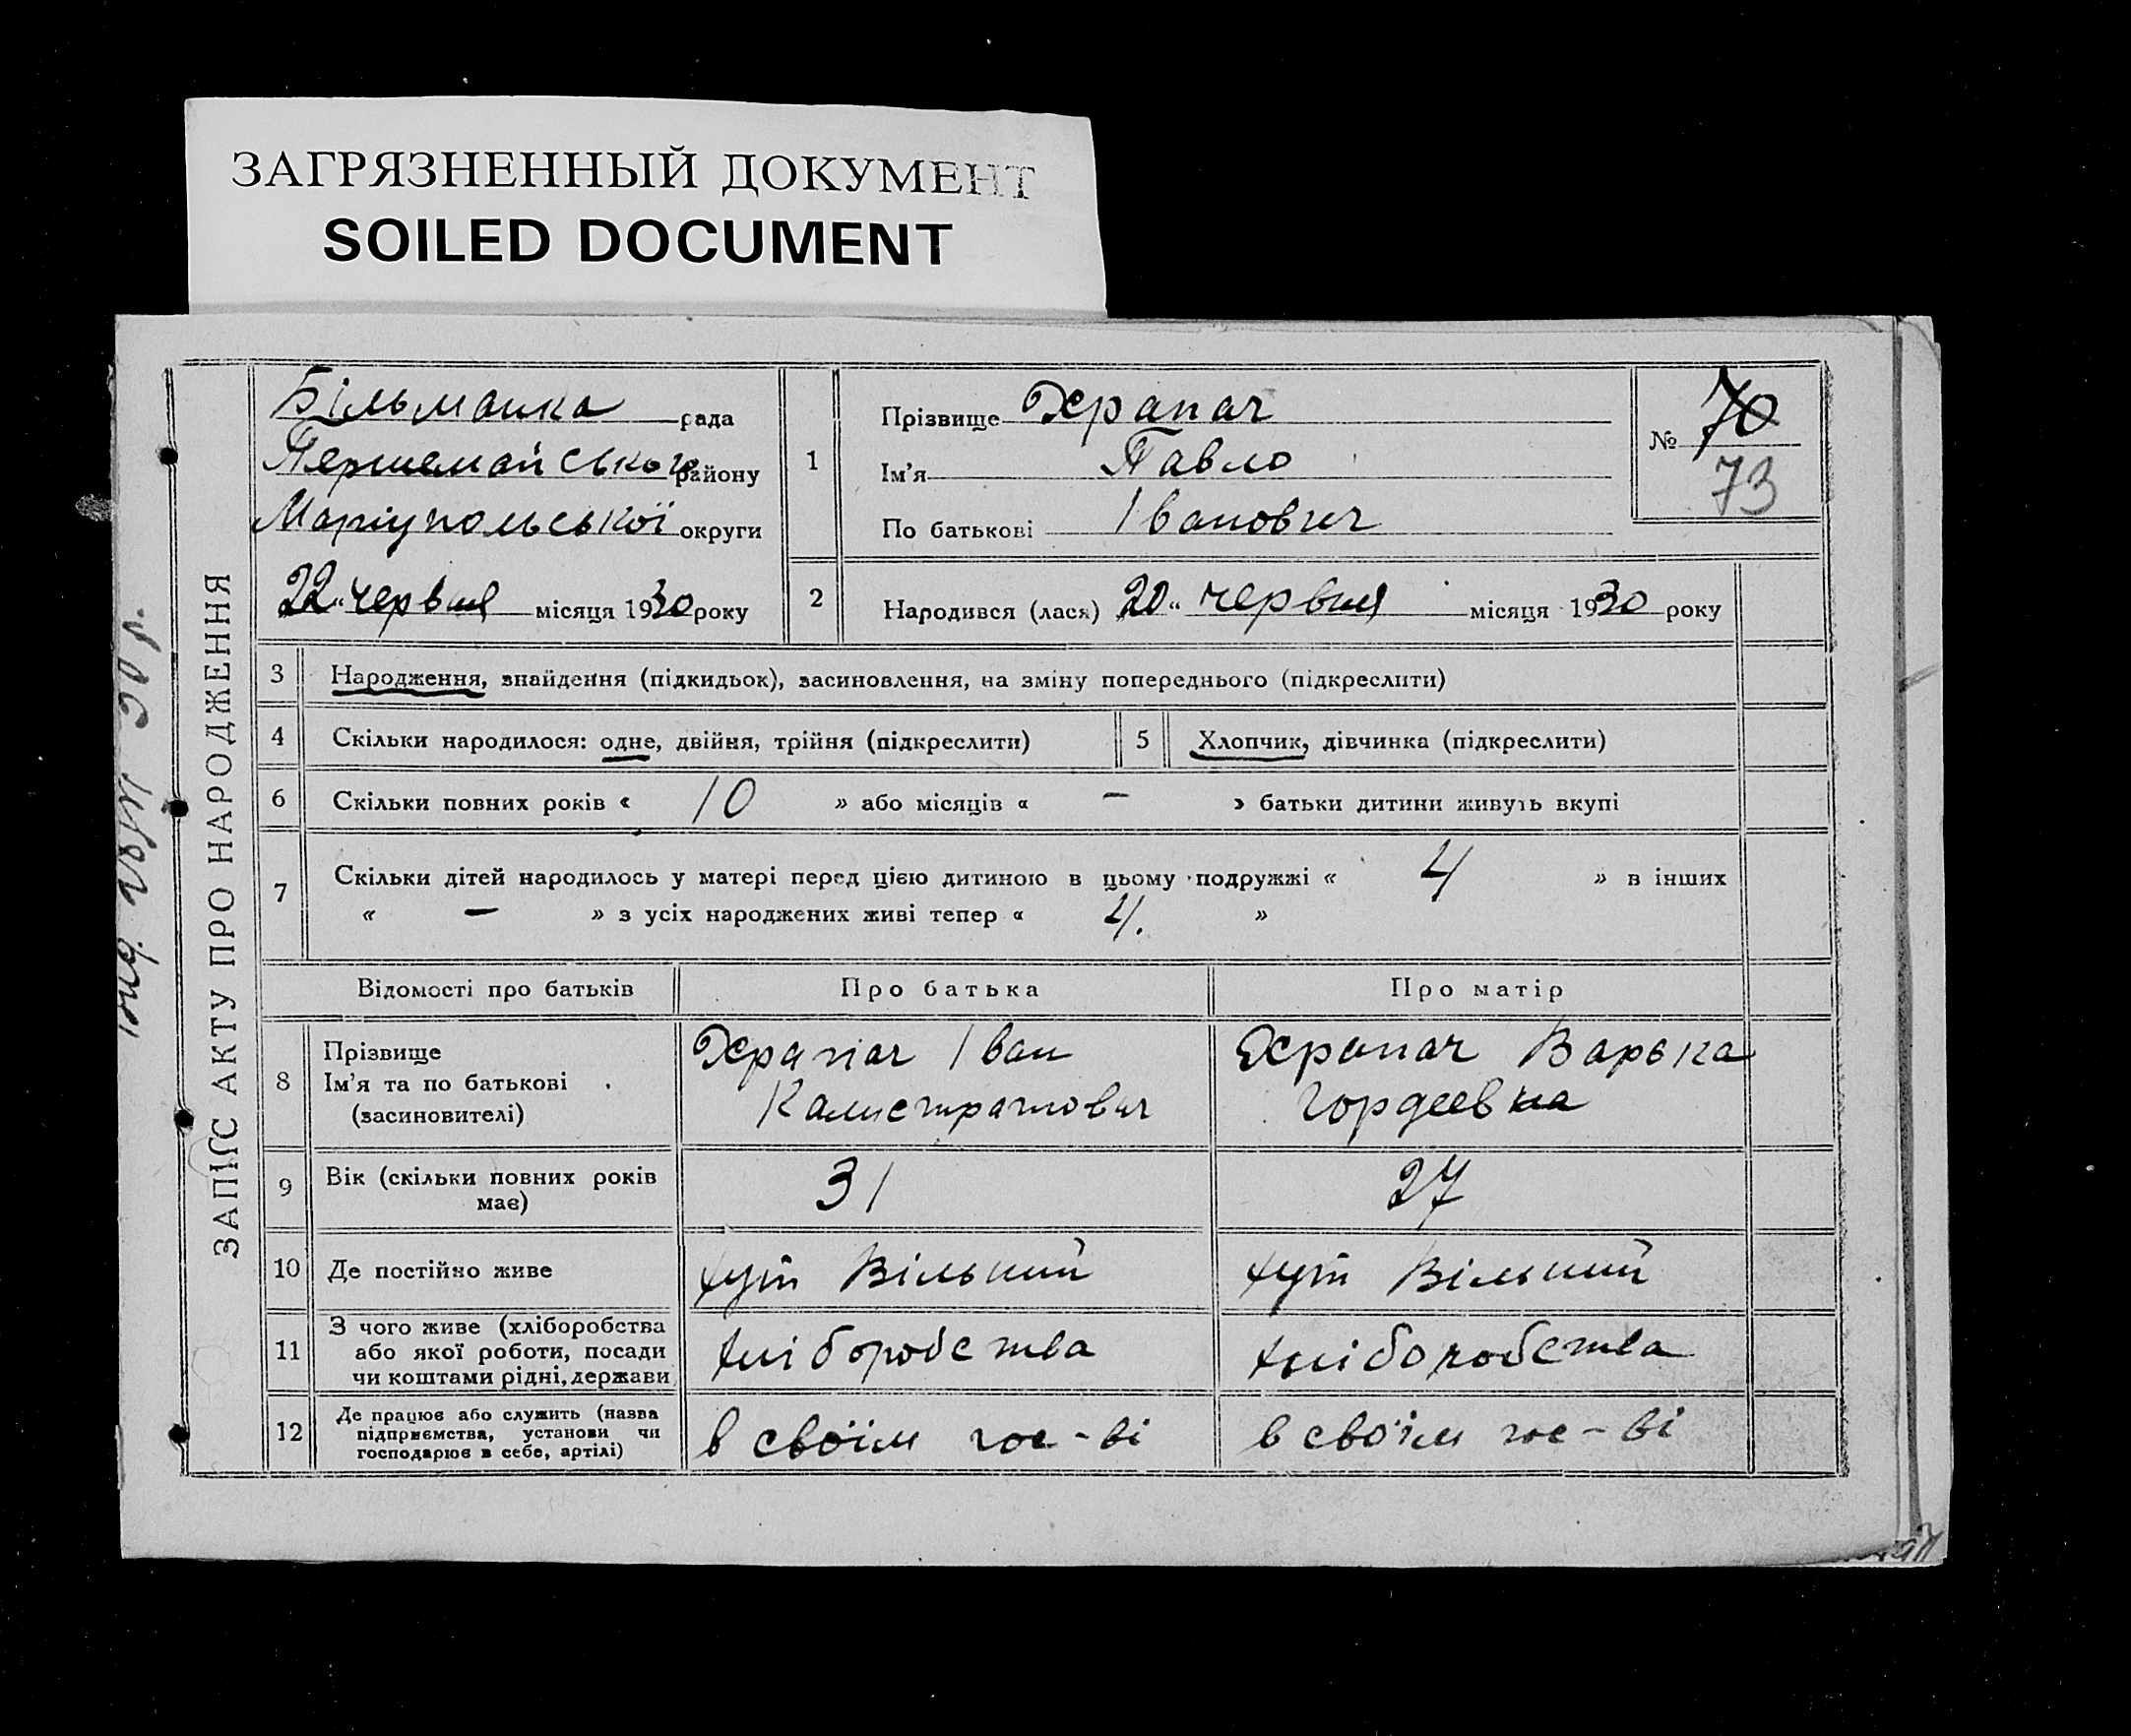 ЗАГРЯЗНЕННЫЙ ДОКУМЕНТ
SOILED DOCUMENT
ЗАПИС АКТУ ПРО НАРОДЖЕННЯ
Більманка рада
Першемайського району
Маріупольської округи
„22“ червня місяця 1930 року
1
Прізвище Храпач
Ім'я Павло
По батькові Іванович
№ 70
73
2 Народився (лася) „20“ червня місяця 1930 року
3 Народження, знайдення (підкидьок), засиновлення, на зміну попереднього (підкреслити)
4 Скільки народилося: одне, двійня, трійня (підкреслити)
5 Хлопчик, дівчинка (підкреслити)
6 Скільки повних років « 10 » або місяців « — » батьки дитини живуть вкупі
7 Скільки дітей народилось у матері перед цією дитиною в цьому подружжі « 4 » в інших
« — » з усіх народжених живі тепер « 4. »
Відомості про батьків Про батька Про матір
8
Прізвище
Ім'я та по батькові
(засиновителі)
Храпач Іван
Калистратович
Храпач Варька
Гордеевна
9 Вік (скільки повних років
має)
31
27
10 Де постійно живе
хут Вільний
хут Вільний
11
З чого живе (хліборобства
або якої роботи, посади
чи коштами рідні, держави
хліборобства
хліборобства
12
Де працює або служить (назва
підприємства, установи чи
господарює в себе, артілі)
в своїм гос-ві
в своїм гос-ві